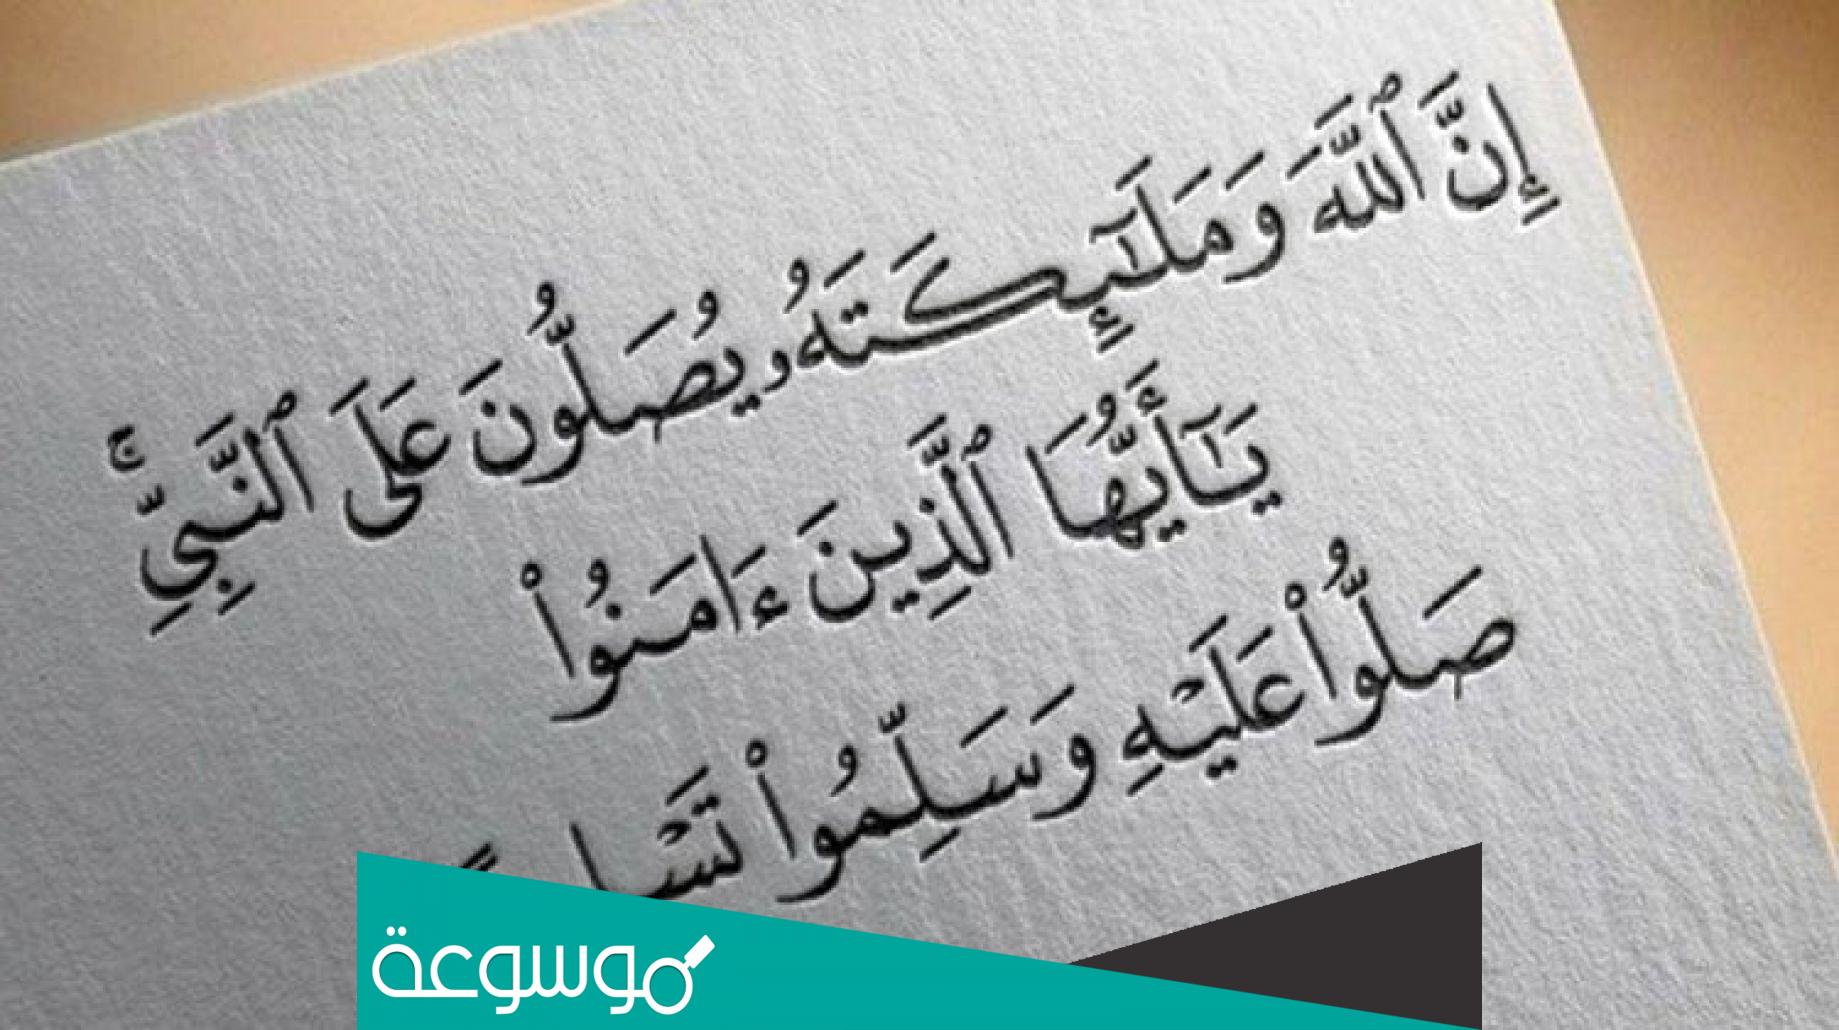 إِنَّ ٱللَّهَ وَمَلَـٰٓئِكَتَهُۥ يُصَلُّونَ عَلَى ٱلنَّبِيِّ ۚ
يَـٰٓأَيُّهَا ٱلَّذِينَ ءَامَنُوا۟
صَلُّوا۟ عَلَيْهِ وَسَلِّمُوا۟
موسوعة